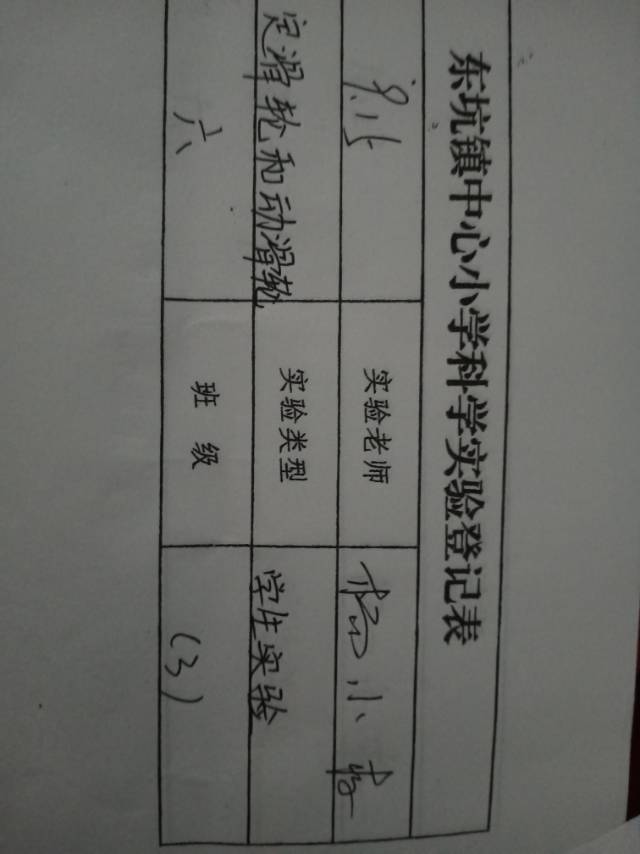 东坑镇中心小学科学实验登记表
9.15 实验老师 小
定滑轮和动滑轮 实验类型 学生实验
六 班 级 (3)